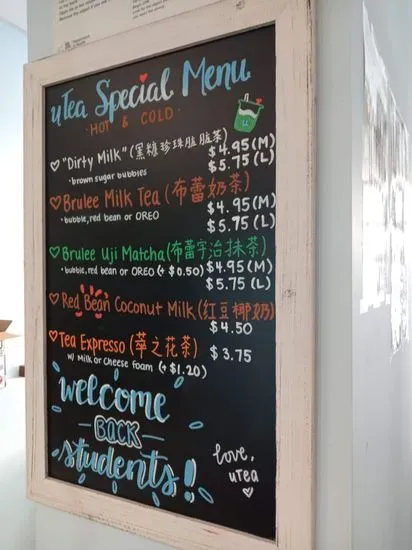 uTea Special Menu
· HOT & COLD ·
"Dirty Milk" (黑糖珍珠脏脏茶)
$4.95 (M)
· brown sugar bubbies $5.75 (L)
Brulee Milk Tea (布蕾奶茶)
$4.95 (M)
· bubble, red bean or OREO
$5.75 (L)
Brulee Uji Matcha (布蕾宇治抹茶)
· bubble, red bean or OREO (+ $0.50) $4.95 (M)
$5.75 (L)
Red Bean Coconut Milk (红豆椰奶)
$4.50
Tea Expresso (萃之花茶)
$3.75
w/ Milk or Cheese foam (+ $1.20)
welcome
BACK
students!
love,
uTea